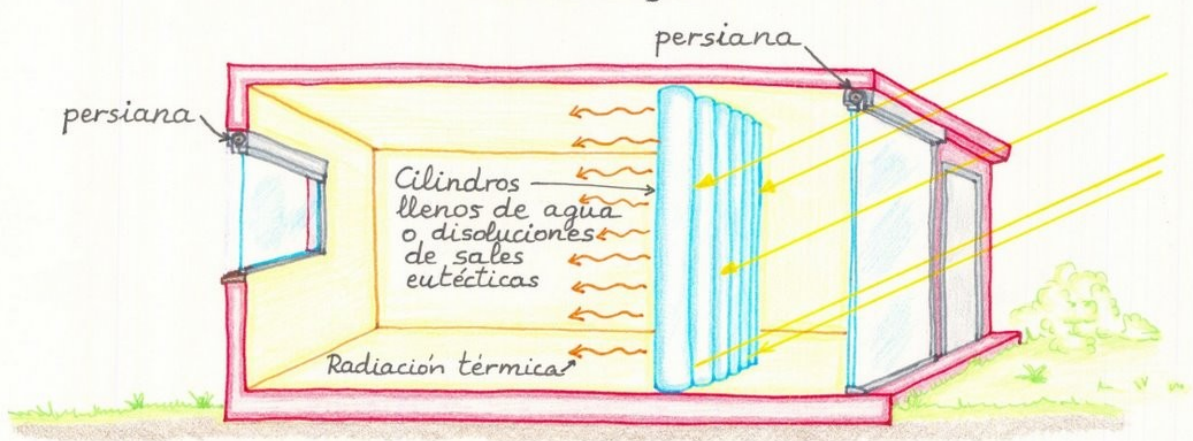 persiana
persiana
Cilindros
llenos de agua
o disoluciones
de sales
eutécticas
Radiación térmica